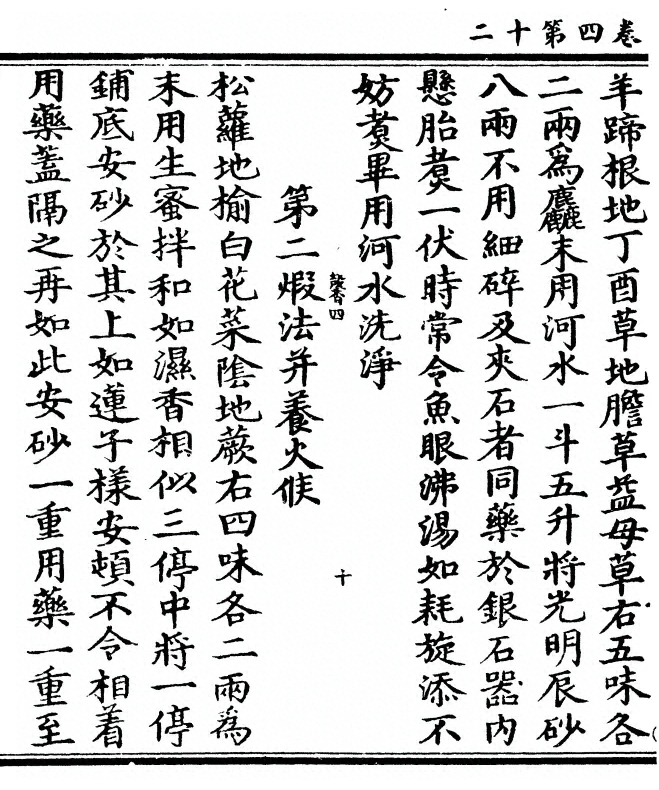 卷四第十二
羊蹄根地丁酉草地膽草益母草右五味各
二兩爲麤末用河水一斗五升將光明辰砂
八兩不用細碎及夾石者同藥於銀石器內
懸胎煑一伏時常令魚眼沸湯如耗旋添不
妨煑畢用河水洗淨
十
第二煆法并養火候
松蘿地榆白花菜隂地蕨右四味各二兩爲
末用生蜜拌和如濕香相似三停中將一停
鋪底安砂於其上如蓮子樣安頓不令相着
用藥蓋隔之再如此安砂一重用藥一重至